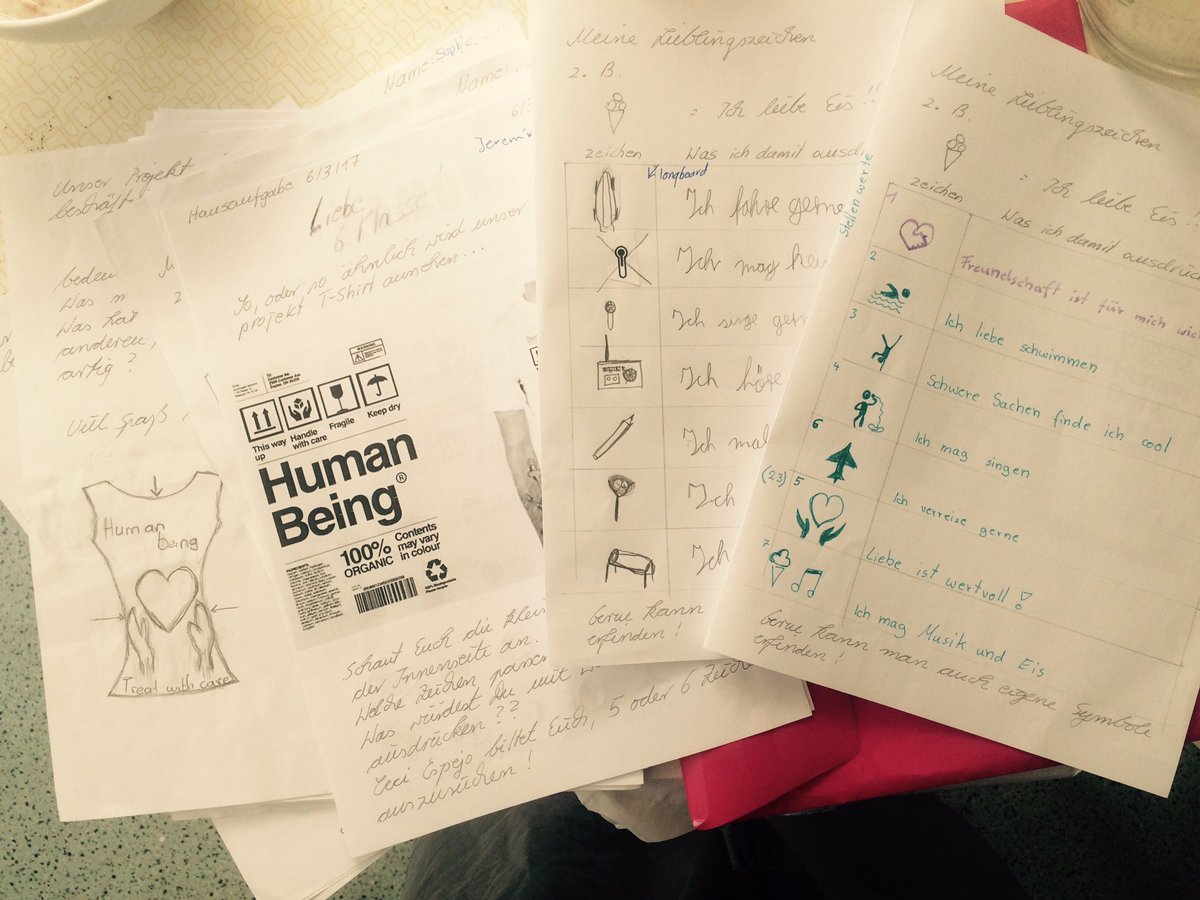 Unser Projekt
beschäft
Was m
Was hat
anderen,
artig?
Viel Spaß
Human
being
Treat with care
Name: Sophie
Name:
6/3
Jeremi
Hausaufgabe 6/3/17
Liebe
6. Klasse
So, oder so ähnlich wird unser
projekt T-Shirt aussehen...
This way
up
Handle
with care
Fragile
Keep dry
Human
Being®
100%
ORGANIC
Contents
may vary
in colour
Schaut Euch die klein
der Innenseite an.
Welche Zeichen passen
Was würdest Du mit
ausdrücken??
Ceci Espejo bittet Euch, 5 oder 6 Zeich
auszusuchen!
Meine Lieblingszeichen
z. B.
= Ich liebe Eis!!
zeichen
Was ich damit ausd
longboard
Ich fahre gerne
Ich mag kei
Ich singe ger
Ich höre
Ich mal
Ich
Ich
Gerne kann
erfinden!
Meine Lieblingszeichen
z. B.
= Ich liebe Eis!!
zeichen
Was ich damit ausdrüc
Stellen werte
1
Freundschaft ist für mich wic
2
Ich liebe schwimmen
3
Schwere Sachen finde ich cool
4
Ich mag singen
6
Ich verreise gerne
(23) 5
Liebe ist wertvoll!
7
Ich mag Musik und Eis
Gerne kann man auch eigene Symbole
erfinden!